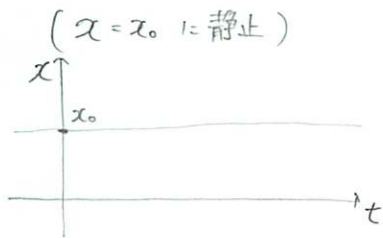 (x = x₀ に静止)
x
x₀
t